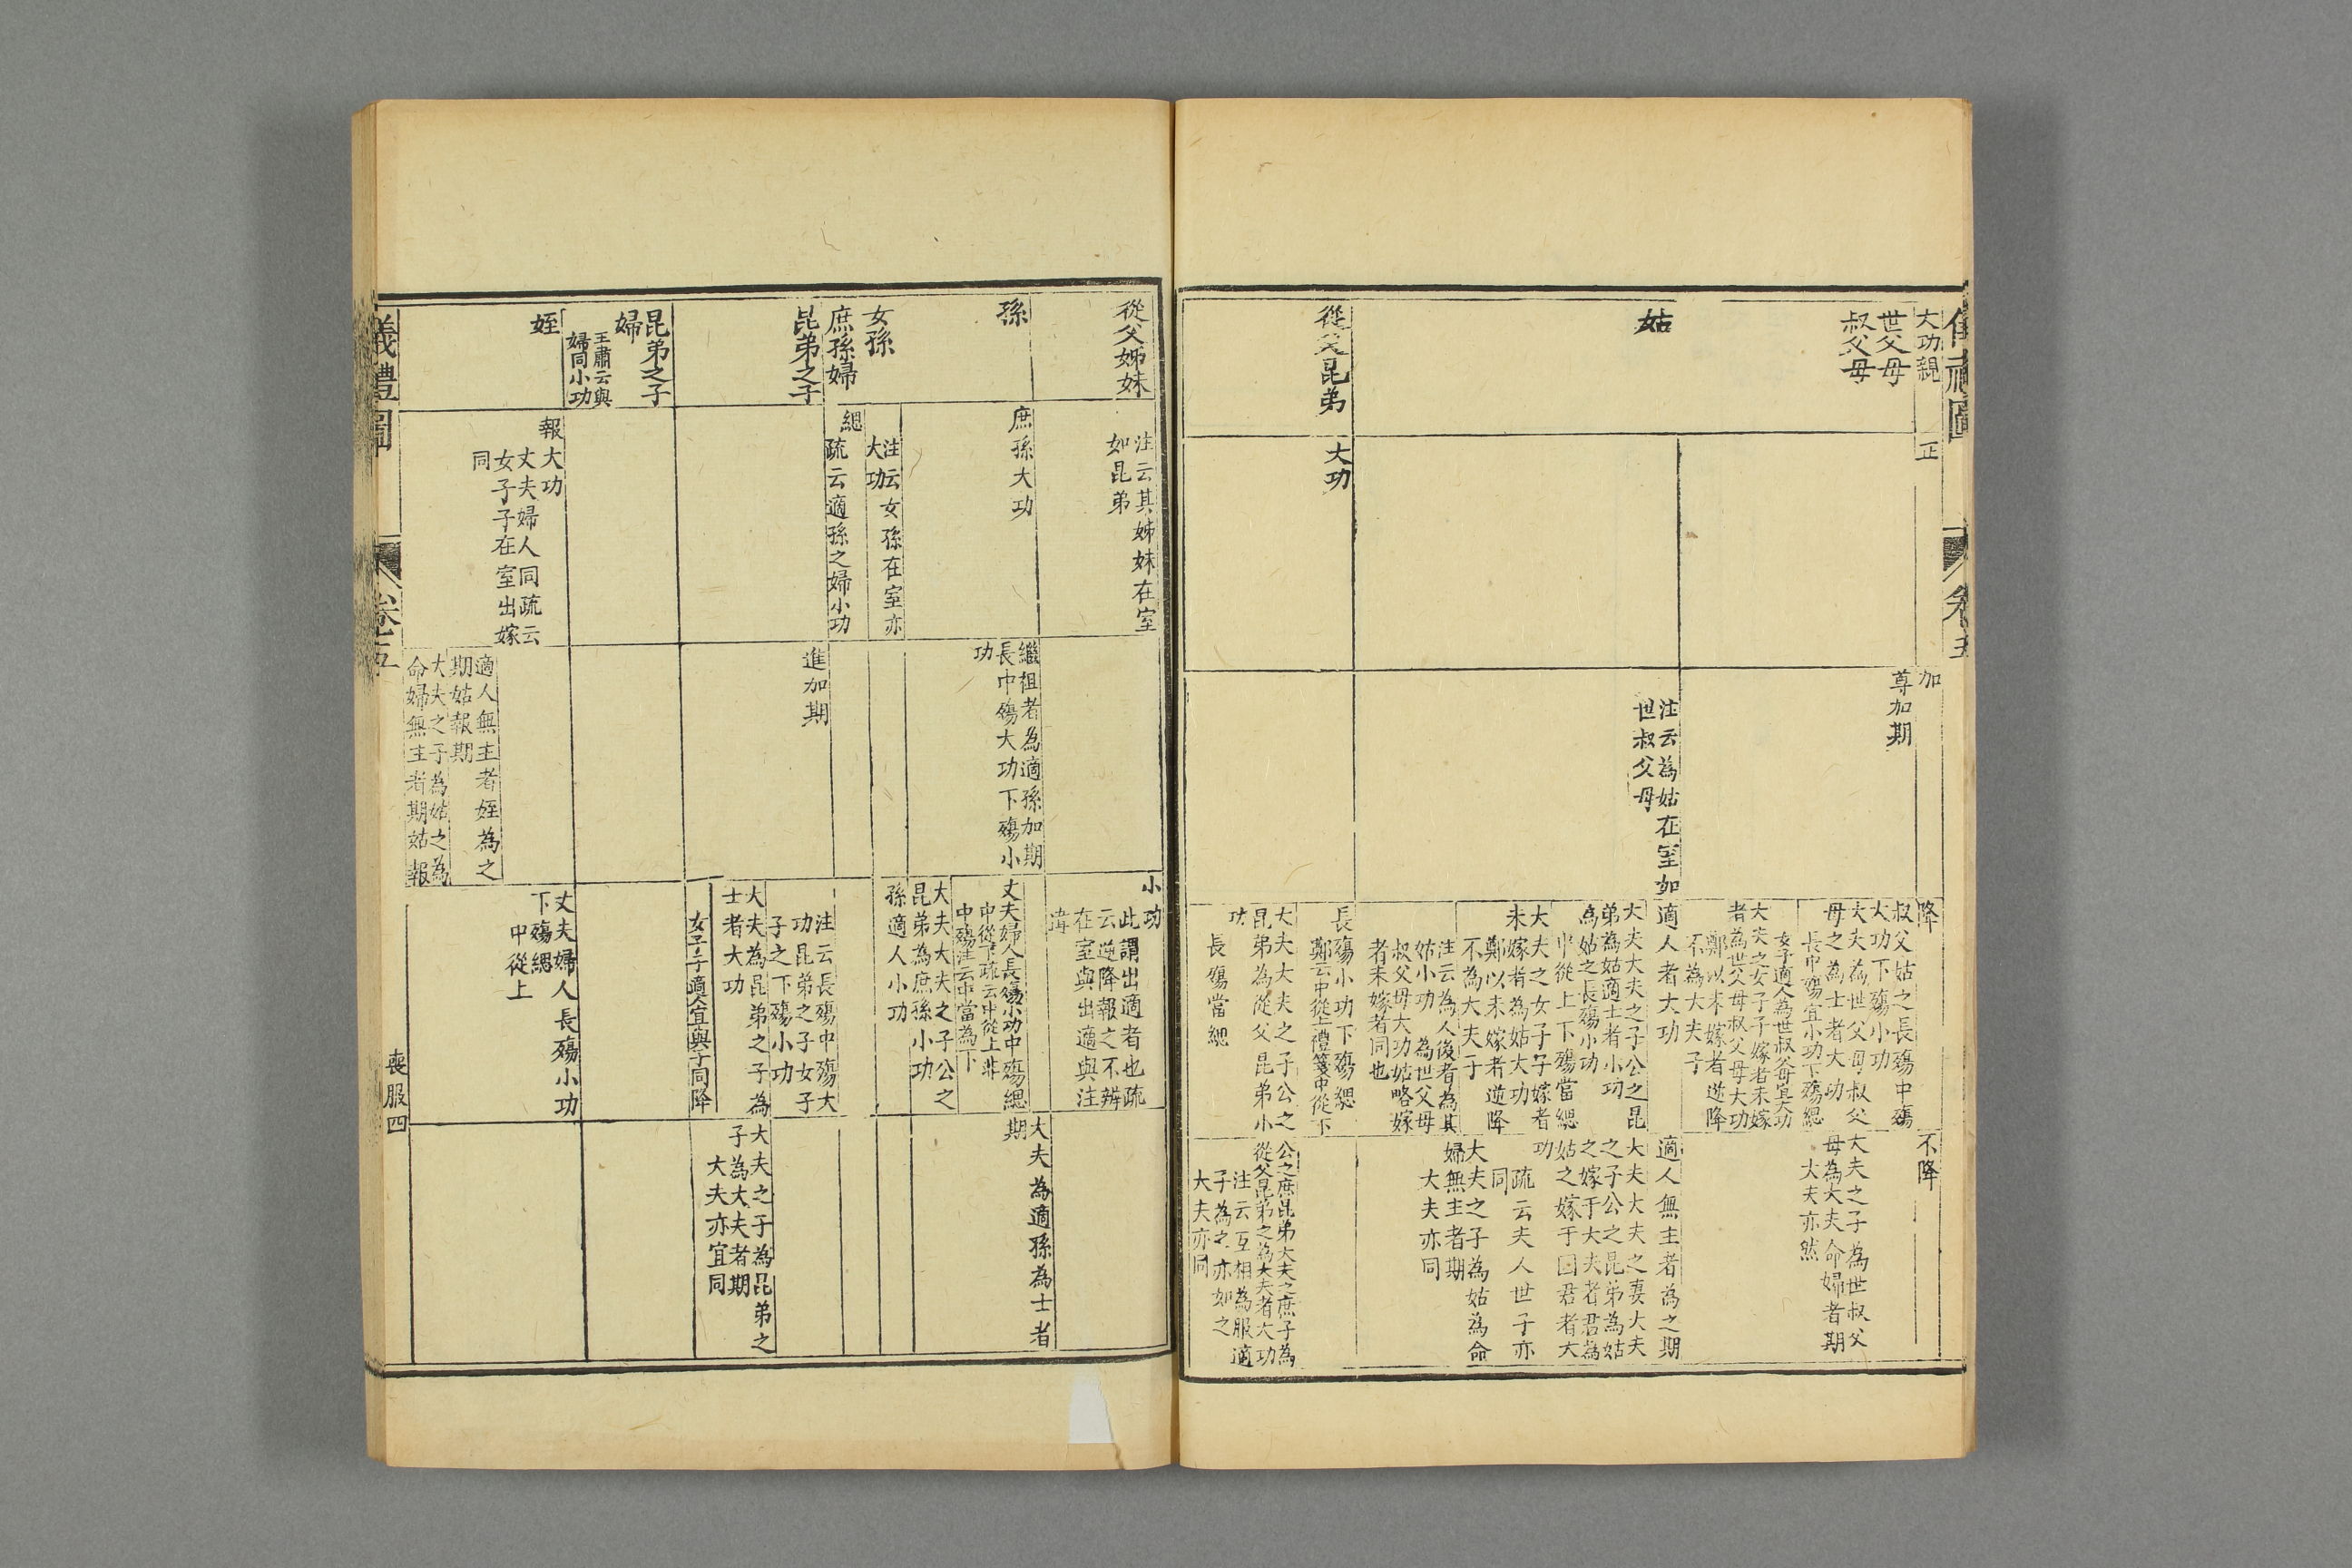 儀禮圖
卷五
大功親
正
加
降
不降
世父母
叔父母
尊加期
叔父姑之長殤中殤
大功下殤小功
大夫為世父母叔父
母之為士者大功
長中殤宜小功下殤緦
女子適人為世叔父母宜大功
大夫之女子子嫁者未嫁
者為世父母叔父母大功
鄭以未嫁者逆降
不為大夫子
大夫之子為世叔父
母為大夫命婦者期
大夫亦然
姑
注云為姑在室如
世叔父母
適人者大功
大夫大夫之子公之昆
弟為姑適士者小功
為姑之長殤小功
中從上下殤當緦
大夫之女子子嫁者
未嫁者為姑大功
鄭以未嫁者逆降
不為大夫子
注云為人後者為其
姊小功為世父母
叔父母大功姑略嫁
者未嫁者同也
適人無主者為之期
大夫大夫之妻大夫
之子公之昆弟為姑
之嫁于大夫者君為
姑之嫁于国君者大
功
疏云夫人世子亦
同
大夫之子為姑為命
婦無主者期
大夫亦同
從父昆弟
大功
長殤小功下殤緦
鄭云中從上禮箋中從下
大夫大夫之子公之
昆弟為從父昆弟小
功
長殤當緦
公之庶昆弟大夫之庶子為
從父昆弟之為大夫者大功
注云互相為服適
子為之亦如之
大夫亦同
從父姊妹
注云其姊妹在室
如昆弟
小功
此謂出適者也疏
云逆降報之不辨
在室與出適與注
違
孫
庶孫大功
繼祖者為適孫加期
長中殤大功下殤小
功
丈夫婦人長殤小功中殤緦
中從下疏云中從上非
中殤注云中當為下
大夫大夫之子公之
昆弟為庶孫小功
大夫為適孫為士者
期
女孫
注云女孫在室亦
大功
孫適人小功
庶孫婦
緦
疏云適孫之婦小功
昆弟之子
進加期
注云長殤中殤大
功昆弟之子女子
子之下殤小功
大夫為昆弟之子為
士者大功
女子子適人宜與子同降
大夫之子為昆弟之
子為大夫者期
大夫亦宜同
昆弟之子
婦
王肅云與
婦同小功
姪
報
大功
丈夫婦人同疏云
女子子在室出嫁
同
適人無主者姪為之
期姑報期
大夫之子為姑之為
命婦無主者期姑報
丈夫婦人長殤小功
下殤緦
中從上
儀禮圖
卷五
喪服四